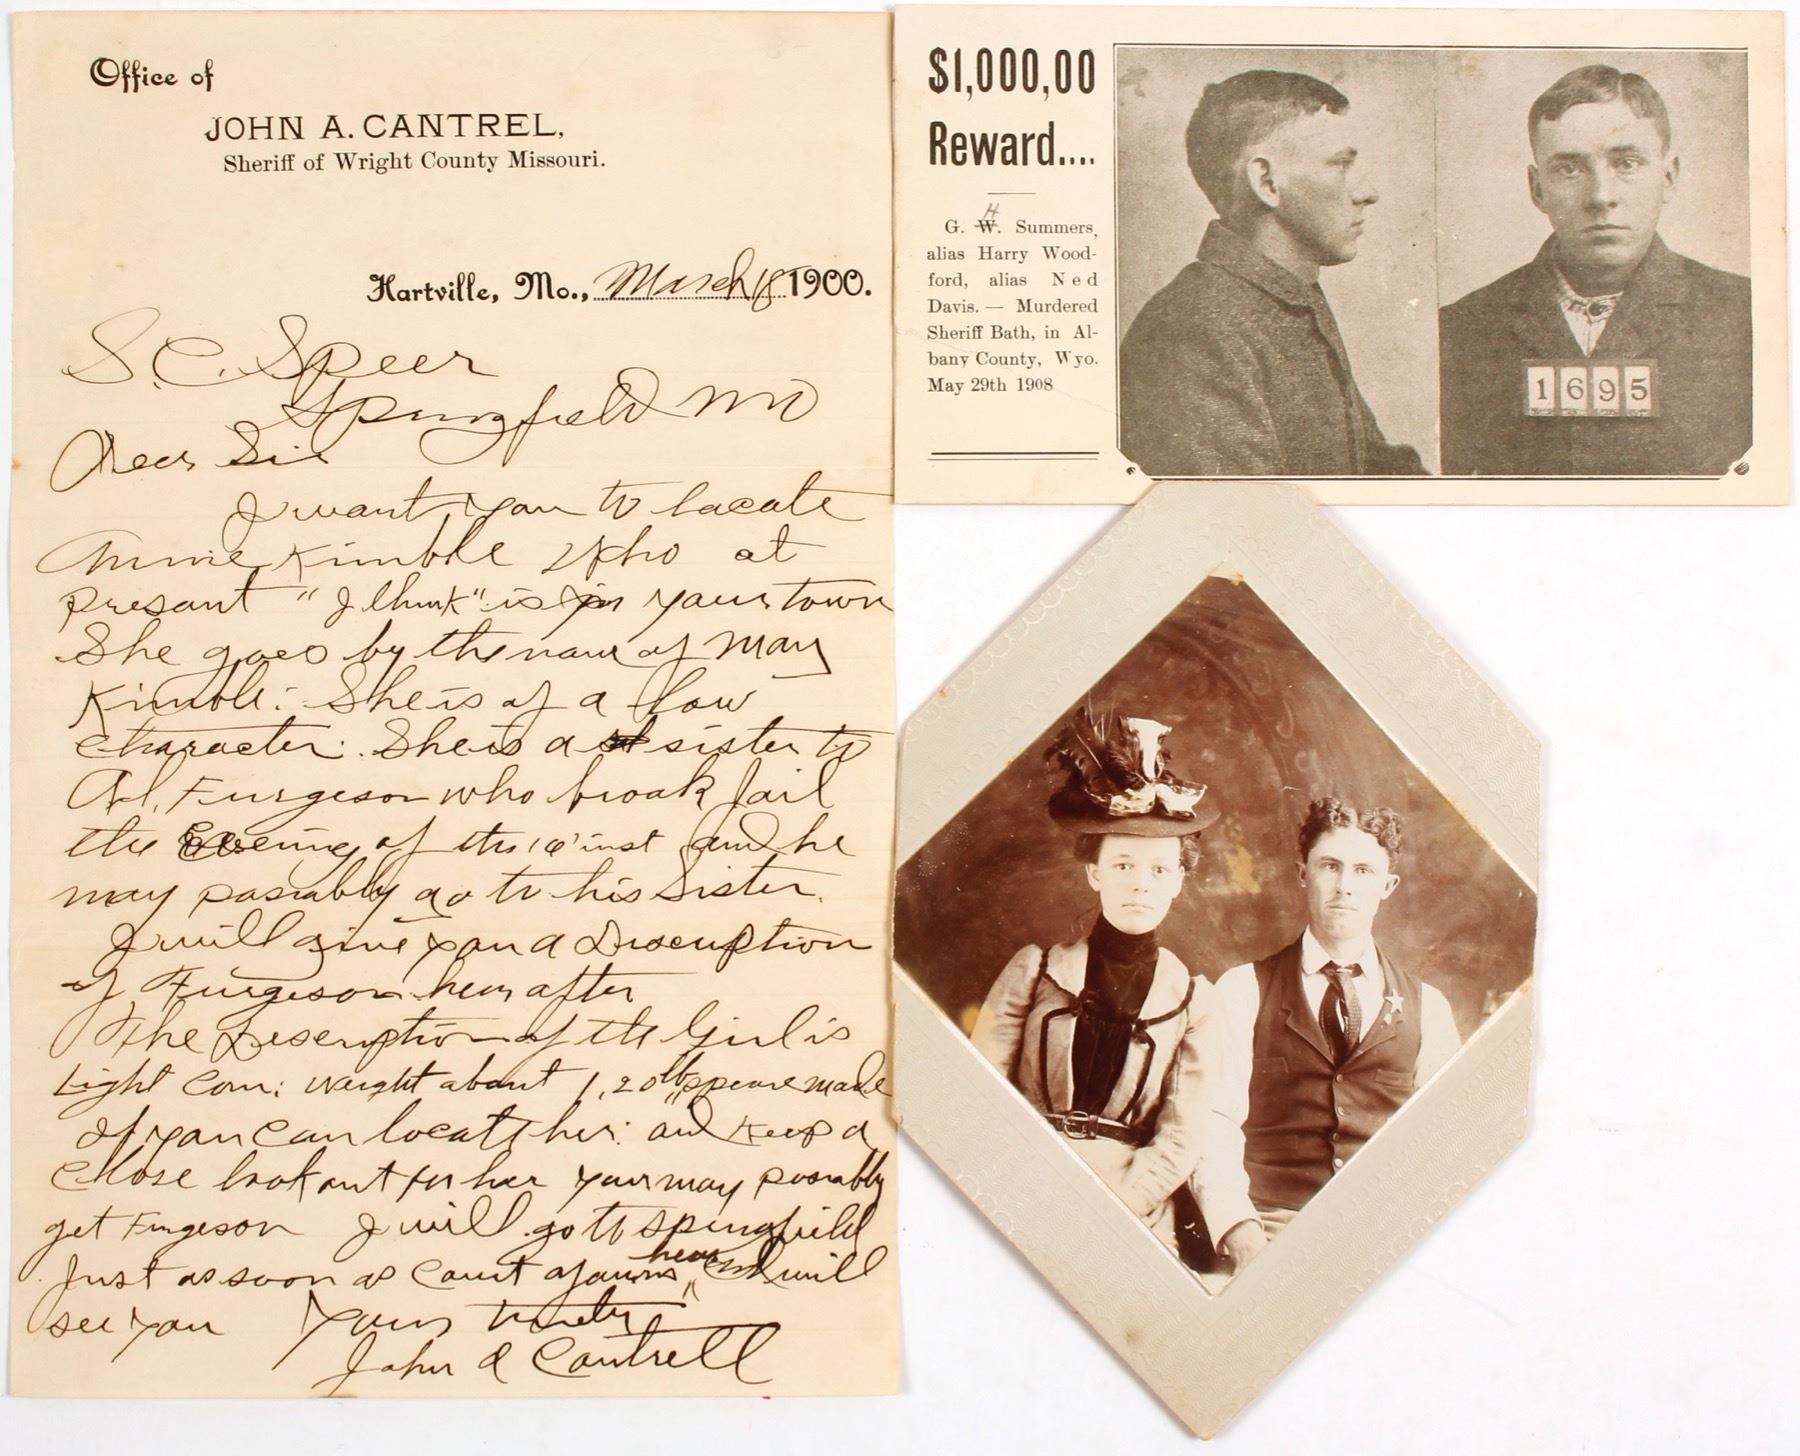 Office of
JOHN A. CANTREL,
Sheriff of Wright County Missouri.
Hartville, Mo., March 18 1900.
S. C. Speer
Springfield Mo
Dear Sir
I want you to locate
Annie Kimble who at
presant "I think" is in your town
She goes by the name of May
Kimble: She is of a low
character: She is a sister to
Al, Furgeson who broak Jail
the Evening of the 16' inst and he
may posiably go to his Sister.
I will give you a Discription
of Furgeson hear after
The Discription of the Girl is
Light Com; weight about 120 lb spear made
If you can locate her: and keep a
close look out for her you may posiably
get Furgeson I will go to Springfield
Just as soon as Court ajourns hear and will
see you Yours truly
John A Cantrell
$1,000,00
Reward....
H
G. W. Summers,
alias Harry Wood-
ford, alias Ned
Davis. — Murdered
Sheriff Bath, in Al-
bany County, Wyo.
May 29th 1908
1695